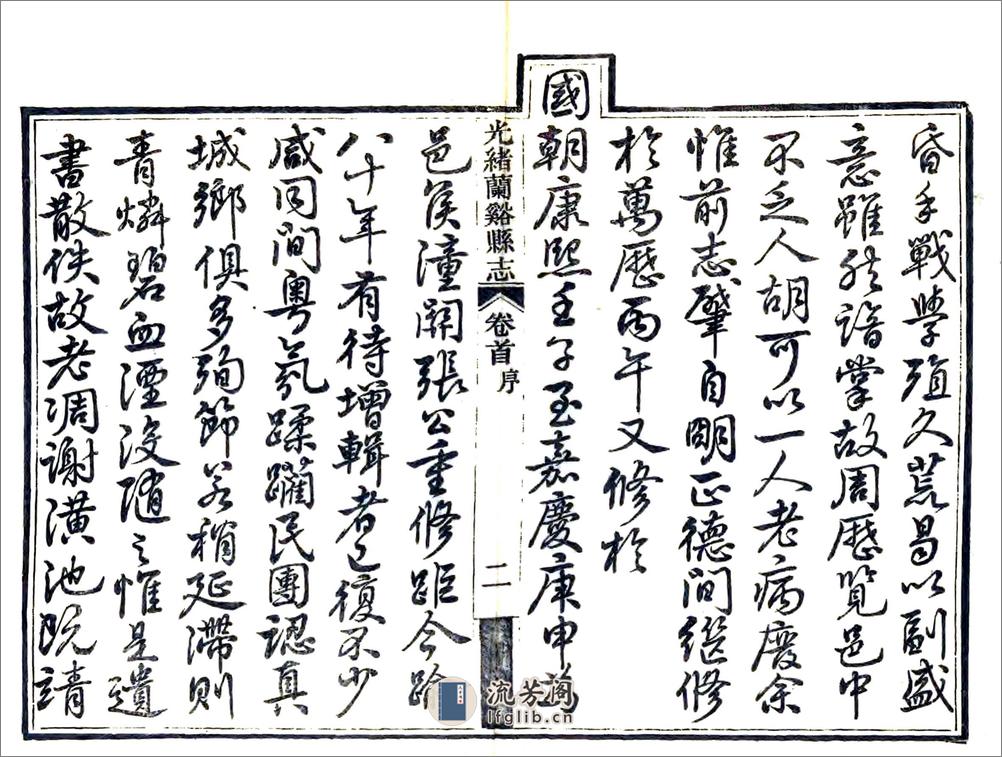 昏手戰學殖久荒曷以副盛
意雖然諳掌故周歷覽邑中
不乏人胡可以一人老病廢余
惟前志肇自明正德間繼修
於萬歷丙午又修於
國朝康熙壬子至嘉慶庚申
光緒蘭谿縣志 卷首 序 二
邑侯潼關張公重修距今踰
八十年有待增輯者已復不少
咸同間粵氛蹂躪民團認真
城鄉俱多殉節若稍延滯則
青燐碧血湮沒隨之惟是遺
書散佚故老凋謝潢池既靖
流芳阁
lfglib.cn